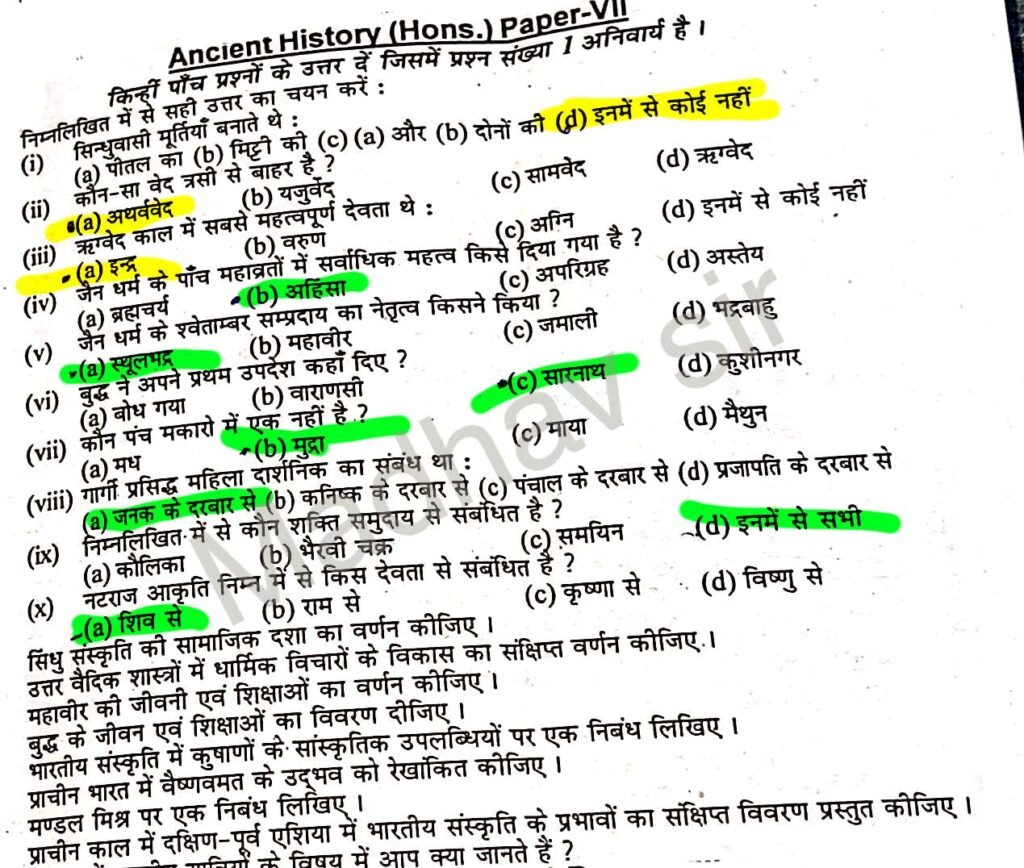 Ancient History (Hons.) Paper-VII
किन्हीं पाँच प्रश्नों के उत्तर दें जिसमें प्रश्न संख्या 1 अनिवार्य है ।
निम्नलिखित में से सही उत्तर का चयन करें :
(i) सिन्धुवासी मूर्तियाँ बनाते थे :
(a) पीतल का (b) मिट्टी की (c) (a) और (b) दोनों की (d) इनमें से कोई नहीं
(ii) कौन-सा वेद त्रसी से बाहर है ?
(a) अथर्ववेद (b) यजुर्वेद (c) सामवेद (d) ऋग्वेद
(iii) ऋग्वेद काल में सबसे महत्वपूर्ण देवता थे :
(a) इन्द्र (b) वरुण (c) अग्नि (d) इनमें से कोई नहीं
(iv) जैन धर्म के पाँच महाव्रतों में सर्वाधिक महत्व किसे दिया गया है ?
(a) ब्रह्मचर्य (b) अहिंसा (c) अपरिग्रह (d) अस्तेय
(v) जैन धर्म के श्वेताम्बर सम्प्रदाय का नेतृत्व किसने किया ?
(a) स्थूलभद्र (b) महावीर (c) जमाली (d) भद्रबाहु
(vi) बुद्ध ने अपने प्रथम उपदेश कहाँ दिए ?
(a) बोध गया (b) वाराणसी (c) सारनाथ (d) कुशीनगर
(vii) कौन पंच मकारो में एक नहीं है ?
(a) मध (b) मुद्रा (c) माया (d) मैथुन
(viii) गार्गी प्रसिद्ध महिला दार्शनिक का संबंध था :
(a) जनक के दरबार से (b) कनिष्क के दरबार से (c) पंचाल के दरबार से (d) प्रजापति के दरबार से
(ix) निम्नलिखित में से कौन शक्ति समुदाय से संबंधित है ?
(a) कौलिका (b) भैरवी चक्र (c) समयिन (d) इनमें से सभी
(x) नटराज आकृति निम्न में से किस देवता से संबंधित है ?
(a) शिव से (b) राम से (c) कृष्णा से (d) विष्णु से
सिंधु संस्कृति की सामाजिक दशा का वर्णन कीजिए ।
उत्तर वैदिक शास्त्रों में धार्मिक विचारों के विकास का संक्षिप्त वर्णन कीजिए ।
महावीर की जीवनी एवं शिक्षाओं का वर्णन कीजिए ।
बुद्ध के जीवन एवं शिक्षाओं का विवरण दीजिए ।
भारतीय संस्कृति में कुषाणों के सांस्कृतिक उपलब्धियों पर एक निबंध लिखिए ।
प्राचीन भारत में वैष्णवमत के उद्भव को रेखांकित कीजिए ।
मण्डल मिश्र पर एक निबंध लिखिए ।
प्राचीन काल में दक्षिण-पूर्व एशिया में भारतीय संस्कृति के प्रभावों का संक्षिप्त विवरण प्रस्तुत कीजिए ।
के विषय में आप क्या जानते हैं ?
Madhav sir